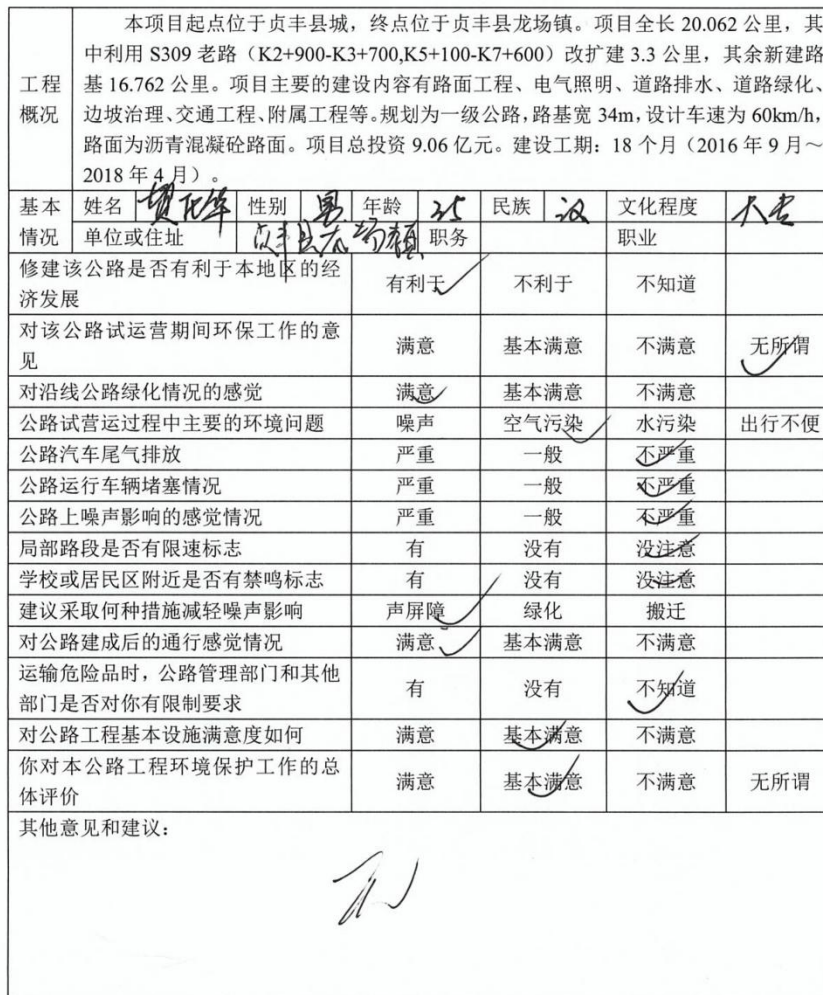 本项目起点位于贞丰县城，终点位于贞丰县龙场镇。项目全长 20.062 公里，其
中利用 S309 老路（K2+900-K3+700,K5+100-K7+600）改扩建 3.3 公里，其余新建路
工程概况 基 16.762 公里。项目主要的建设内容有路面工程、电气照明、道路排水、道路绿化、
边坡治理、交通工程、附属工程等。规划为一级公路，路基宽 34m，设计车速为 60km/h，
路面为沥青混凝砼路面。项目总投资 9.06 亿元。建设工期：18 个月（2016 年 9 月～
2018 年 4 月）。
基本情况 姓名 性别 男 年龄 民族 汉 文化程度 大专
单位或住址 贞丰县龙场镇 职务 职业
修建该公路是否有利于本地区的经
济发展 有利于 不利于 不知道
对该公路试运营期间环保工作的意
见 满意 基本满意 不满意 无所谓
对沿线公路绿化情况的感觉 满意 基本满意 不满意
公路试营运过程中主要的环境问题 噪声 空气污染 水污染 出行不便
公路汽车尾气排放 严重 一般 不严重
公路运行车辆堵塞情况 严重 一般 不严重
公路上噪声影响的感觉情况 严重 一般 不严重
局部路段是否有限速标志 有 没有 没注意
学校或居民区附近是否有禁鸣标志 有 没有 没注意
建议采取何种措施减轻噪声影响 声屏障 绿化 搬迁
对公路建成后的通行感觉情况 满意 基本满意 不满意
运输危险品时，公路管理部门和其他
部门是否对你有限制要求 有 没有 不知道
对公路工程基本设施满意度如何 满意 基本满意 不满意
你对本公路工程环境保护工作的总
体评价 满意 基本满意 不满意 无所谓
其他意见和建议：